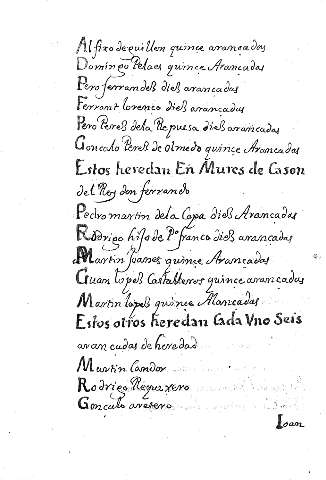 Alfixo de guillen quince arancadas
Domingo Pelaes quince Arancadas
Pero ferrandes dies arancadas
Ferrant lorenco dies arancadas
Pero Peres de la Repuesa dies arancadas
Goncalo Peres de olmedo quince Arancadas
Estos heredan En Mures de Cason
del Rey don ferrando
Pedro martin de la Copa dies Arancadas
Rodrigo hijo de Po franco dies arancadas
Martin Joanes quince Arancadas
Guan lopes Castalleros quince arancadas
Martin lopes quince Alancadas
Estos otros heredan Cada Vno Seis
arancadas de heredad
Martin Candor
Rodrigo Requexero
Goncalo aresero
Ioan